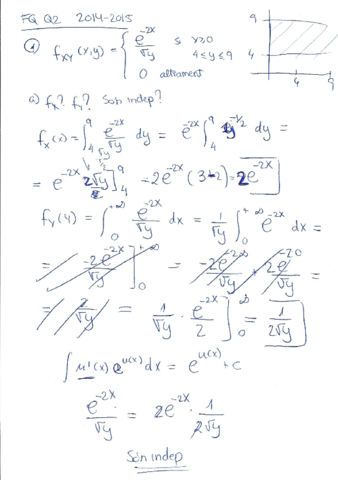 FQ Q2 2014-2015
① f_XY(x,y) = { e^{-2x}/√y si x≥0 4≤y≤9
0 altrament
9
4
4 9
a) f_X? f_Y? Són indep?
f_X(x) = ∫_4^9 e^{-2x}/√y dy = e^{-2x} ∫_4^9 y^{-1/2} dy =
= e^{-2x} 2√y ]_4^9 = 2e^{-2x} (3-2) = 2e^{-2x}
f_Y(y) = ∫_0^{+∞} e^{-2x}/√y dx = 1/√y ∫_0^{+∞} e^{-2x} dx =
= -2e^{-2x}/√y ]_0^{+∞} = -2e^{-2∞}/√y + 2e^{-2·0}/√y =
= 2/√y = 1/√y · e^{-2x}/2 ]_0^∞ = 1/2√y
∫ u'(x) e^{u(x)} dx = e^{u(x)} + c
e^{-2x}/√y = 2e^{-2x} · 1/2√y
Són indep